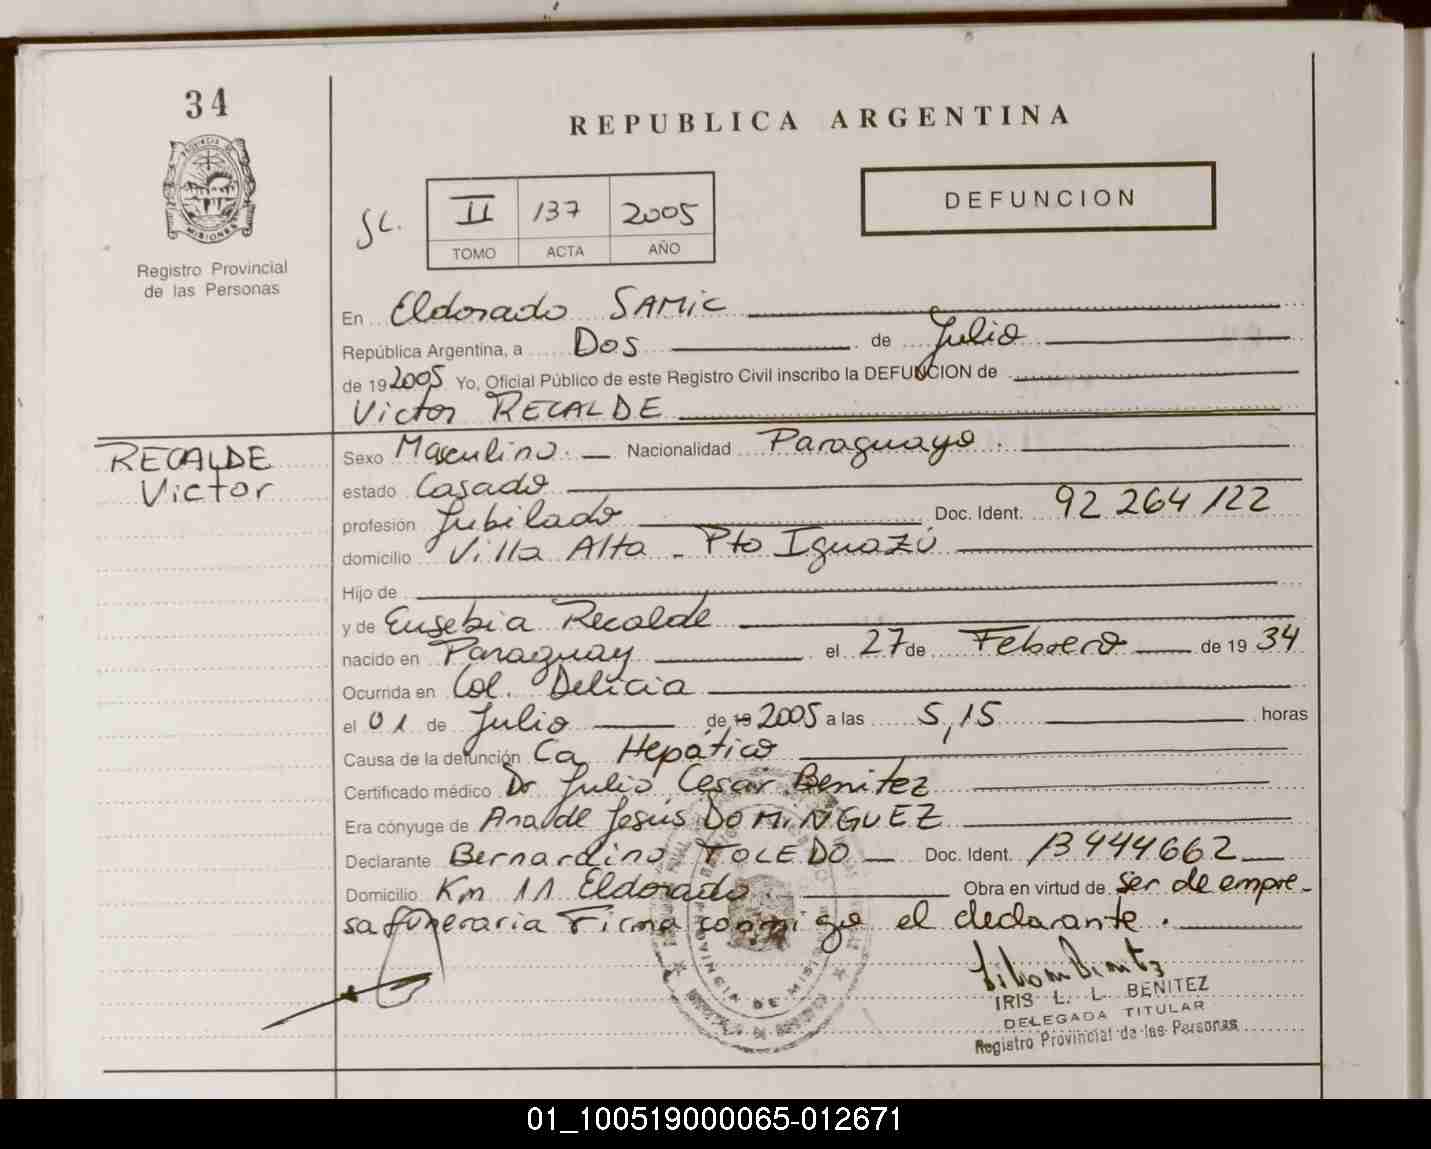 34
REPUBLICA ARGENTINA
DEFUNCION
SC.
II 137 2005
TOMO ACTA AÑO
PROVINCIA DE
MISIONES
Registro Provincial
de las Personas
En Eldorado SAMIC
República Argentina, a Dos de Julio
de 19 2005 Yo, Oficial Público de este Registro Civil inscribo la DEFUNCION de
Victor RECALDE
RECALDE
Victor
Sexo Masculino. Nacionalidad Paraguayo.
estado Casado
profesión Jubilado Doc. Ident. 92 264 122
domicilio Villa Alta - Pto Iguazú
Hijo de
y de Eusebia Recalde
nacido en Paraguay el 27 de Febrero de 19 34
Ocurrida en Col. Delicia
el 01 de Julio de 19 2005 a las 5,15 horas
Causa de la defunción Ca Hepático
Certificado médico Dr Julio Cesar Benitez
Era cónyuge de Ana de Jesús DOMINGUEZ
Declarante Bernardino TOLEDO Doc. Ident. 13444662
Domicilio Km 11 Eldorado. Obra en virtud de ser de empre-
sa funeraria Firma conmigo el declarante.
PROVINCIA DE MISIONES
IRIS L. L. BENITEZ
DELEGADA TITULAR
Registro Provincial de las Personas
01_100519000065-012671